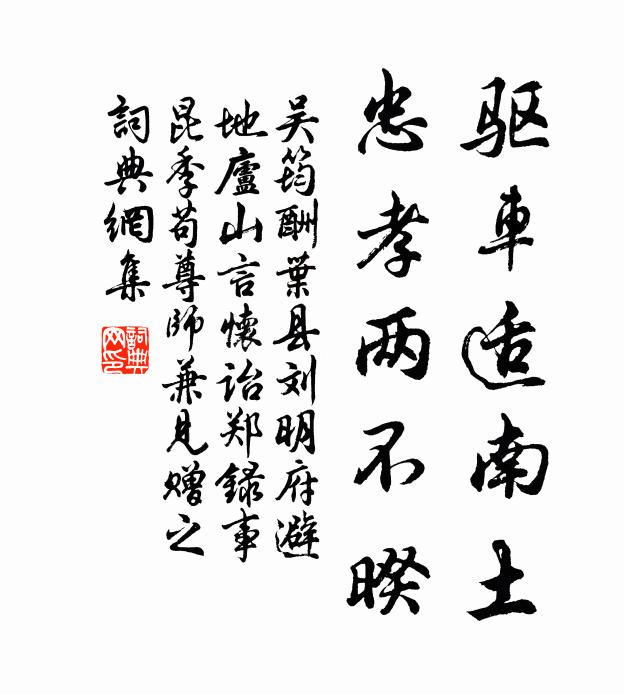 驱車适南土
忠孝两不暌
吴筠酬葉县刘明府避
地廬山言懷诒郑録事
昆季苟尊師兼见赠之
詞典網集
詞典网印